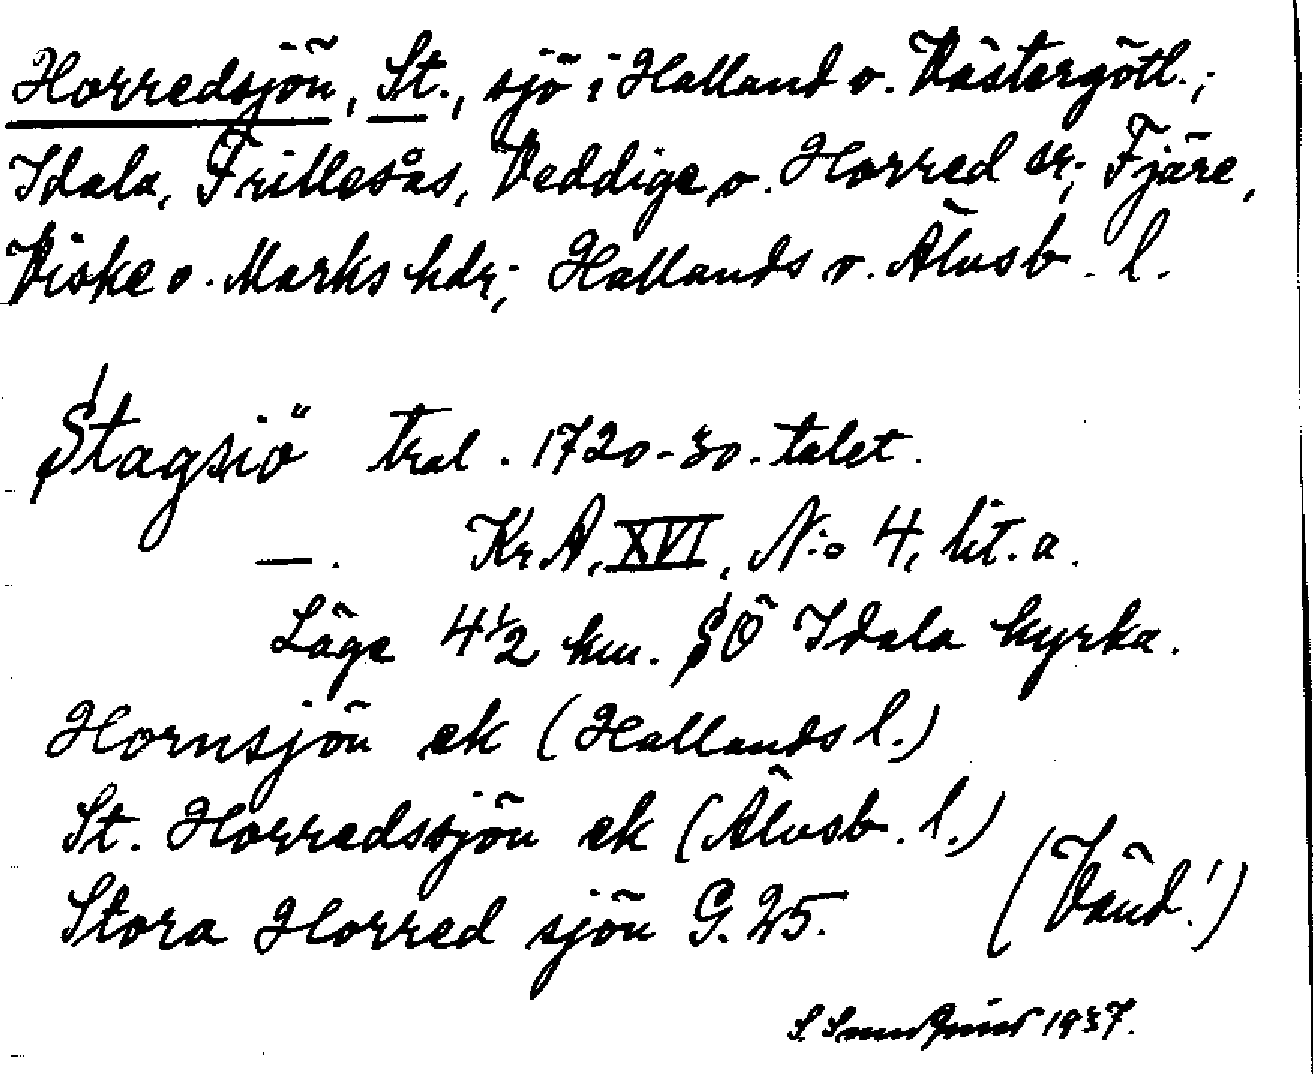 Horredsjön, St., sjö i Halland o. Västergötl.;
Idala, Frillesås, Veddige o. Horred sr; Fjäre,
Viske o. Marks hdr; Hallands o. Älvsb. l.
Stagsiö tral. 1720-30-talet.
—. KrA, XVI, N:o 4, lit. a.
Läge 4 1/2 km. SÖ Idala kyrka.
Hornsjön ek (Hallands l.)
St. Horredssjön ek (Älvsb. l.)
Stora Horred sjön G. 25. (Vänd!)
S. 1937.